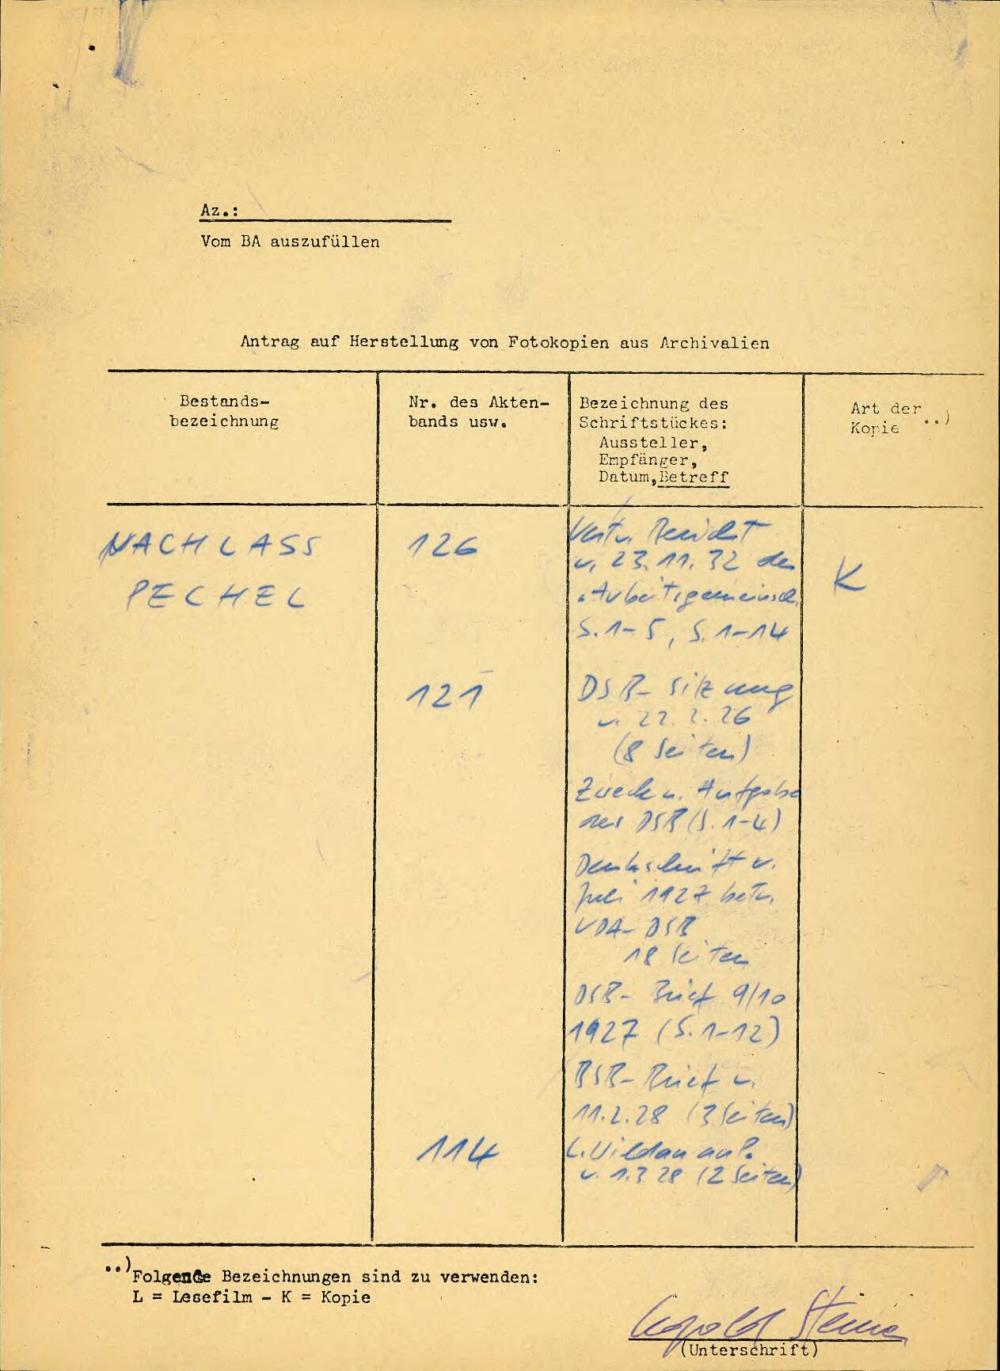 Az.:
Vom BA auszufüllen
Antrag auf Herstellung von Fotokopien aus Archivalien
Bestands-
bezeichnung
Nr. des Akten-
bands usw.
Bezeichnung des
Schriftstückes:
Aussteller,
Empfänger,
Datum, Betreff
Art der
Kopie ..)
NACHLASS
PECHEL
126
Bericht
v. 23.11.32 der
"Arbeitsgemeinsch.
S. 1-5, S. 1-14
K
121
DSB-Sitzung
v. 22.2.26
(8 Seiten)
Zweck u. Aufgabe
des DSB (S. 1-4)
Denkschrift v.
Juli 1927 betr.
VDA-DSB
18 Seiten
DSB-Brief 9/10
1927 (S. 1-12)
DSB-Brief v.
11.2.28 (3 Seiten)
114
v. 1.3.28 (2 Seiten)
..) Folgende Bezeichnungen sind zu verwenden:
L = Lesefilm - K = Kopie
Leopold Steiner
(Unterschrift)